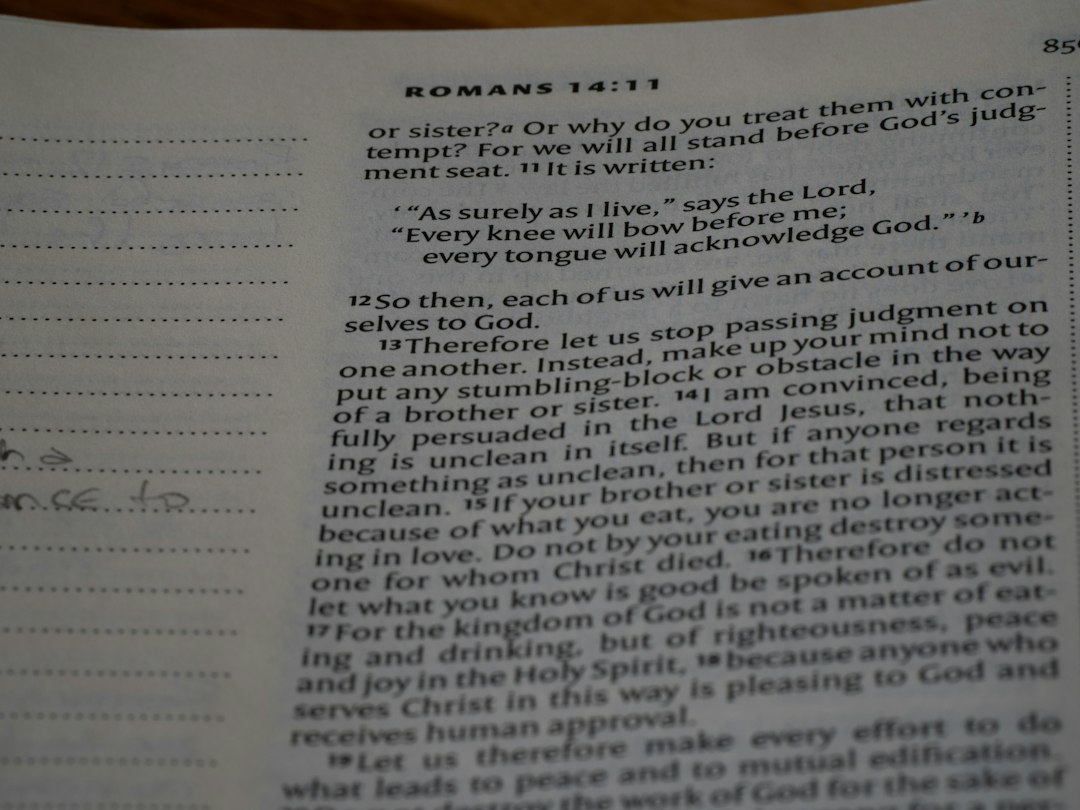 ROMANS 14:11
or sister?a Or why do you treat them with con-
tempt? For we will all stand before God's judg-
ment seat. 11 It is written:
‘ “As surely as I live,” says the Lord,
“Every knee will bow before me;
every tongue will acknowledge God.” ’b
12 So then, each of us will give an account of our-
selves to God.
13 Therefore let us stop passing judgment on
one another. Instead, make up your mind not to
put any stumbling-block or obstacle in the way
of a brother or sister. 14 I am convinced, being
fully persuaded in the Lord Jesus, that noth-
ing is unclean in itself. But if anyone regards
something as unclean, then for that person it is
unclean. 15 If your brother or sister is distressed
because of what you eat, you are no longer act-
ing in love. Do not by your eating destroy some-
one for whom Christ died. 16 Therefore do not
let what you know is good be spoken of as evil.
17 For the kingdom of God is not a matter of eat-
ing and drinking, but of righteousness, peace
and joy in the Holy Spirit, 18 because anyone who
serves Christ in this way is pleasing to God and
receives human approval.
19 Let us therefore make every effort to do
what leads to peace and to mutual edification.
destroy the work of God for the sake of
to